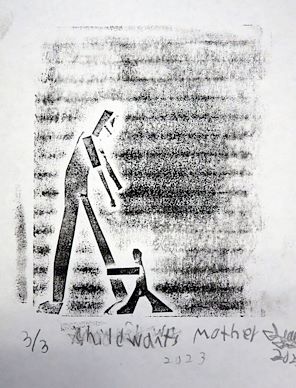 3/3 Child wants Mother
2023